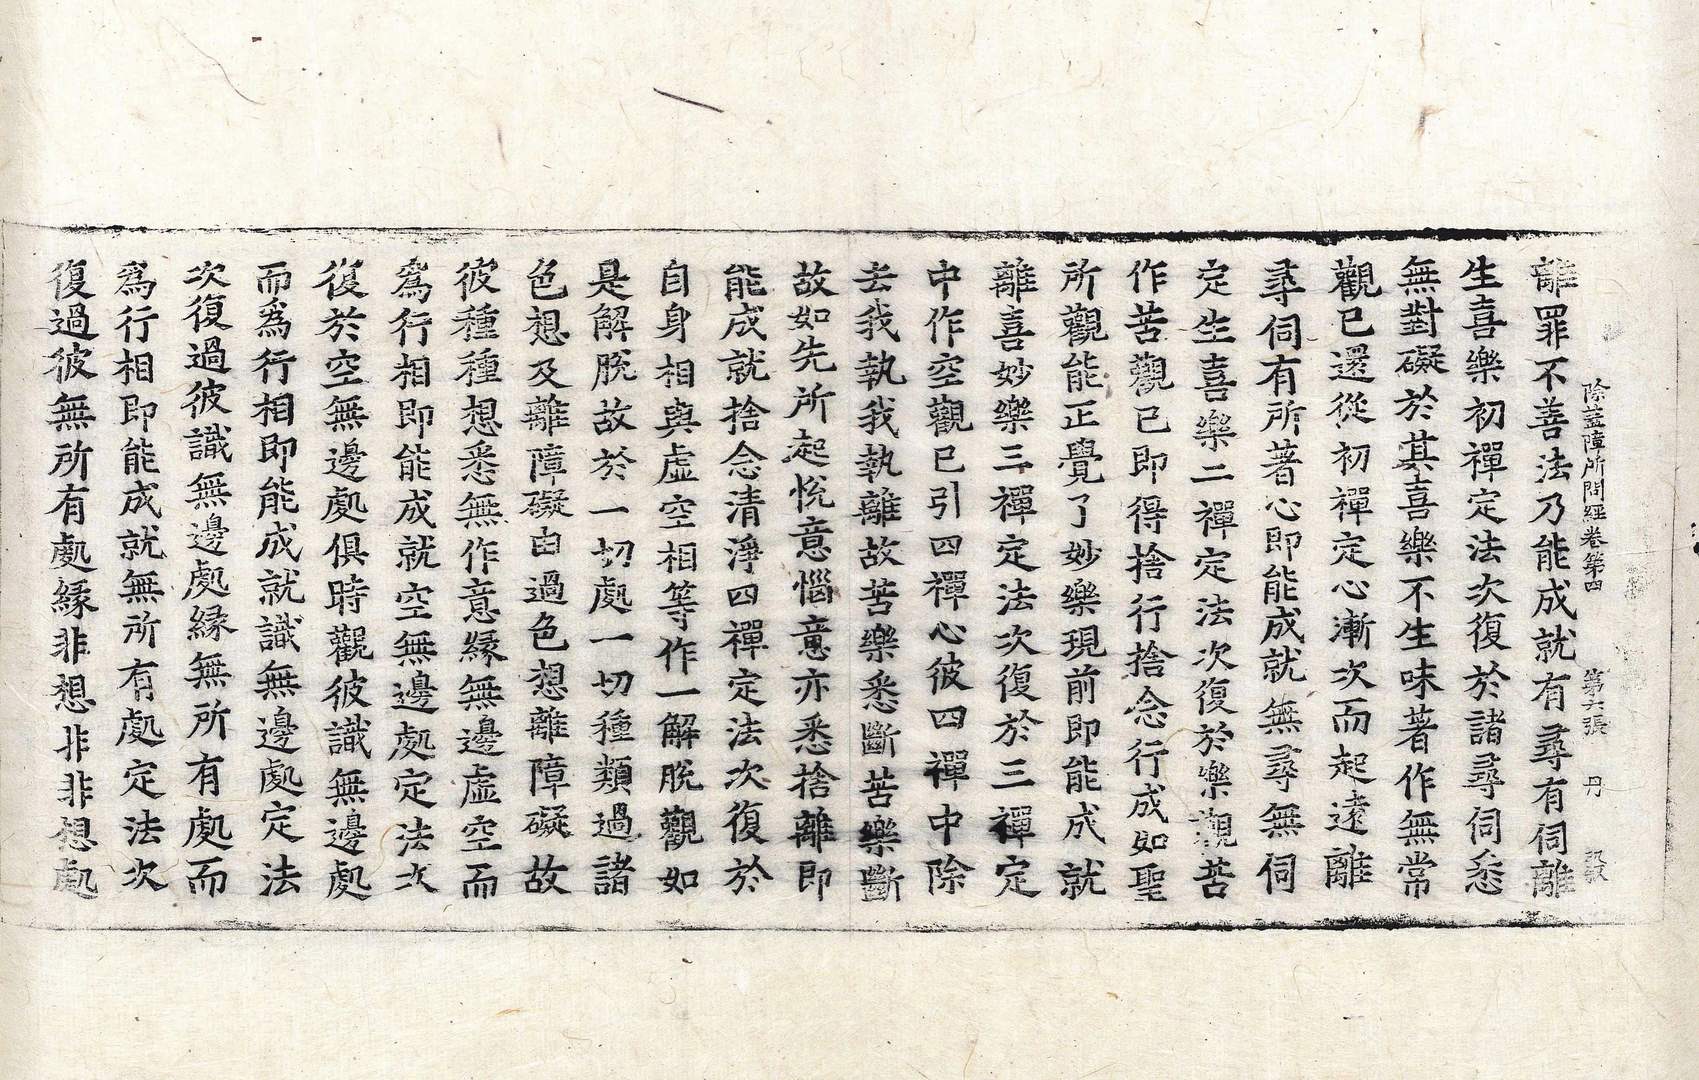 除蓋障所問經卷第四 第六張 丹 毀
離罪不善法乃能成就有尋有伺離
生喜樂初禪定法次復於諸尋伺悉
無對礙於其喜樂不生味著作無常
觀已還從初禪定心漸次而起遠離
尋伺有所著心即能成就無尋無伺
定生喜樂二禪定法次復於樂觀苦
作苦觀已即得捨行捨念行成如聖
所觀能正覺了妙樂現前即能成就
離喜妙樂三禪定法次復於三禪定
中作空觀已引四禪心彼四禪中除
去我執我執離故苦樂悉斷苦樂斷
故如先所起悅意惱意亦悉捨離即
能成就捨念清淨四禪定法次復於
自身相與虛空相等作一解脫觀如
是解脫故於一切處一切種類過諸
色想及離障礙由過色想離障礙故
彼種種想悉無作意緣無邊虛空而
爲行相即能成就空無邊處定法次
復於空無邊處俱時觀彼識無邊處
而爲行相即能成就識無邊處定法
次復過彼識無邊處緣無所有處而
爲行相即能成就無所有處定法次
復過彼無所有處緣非想非非想處